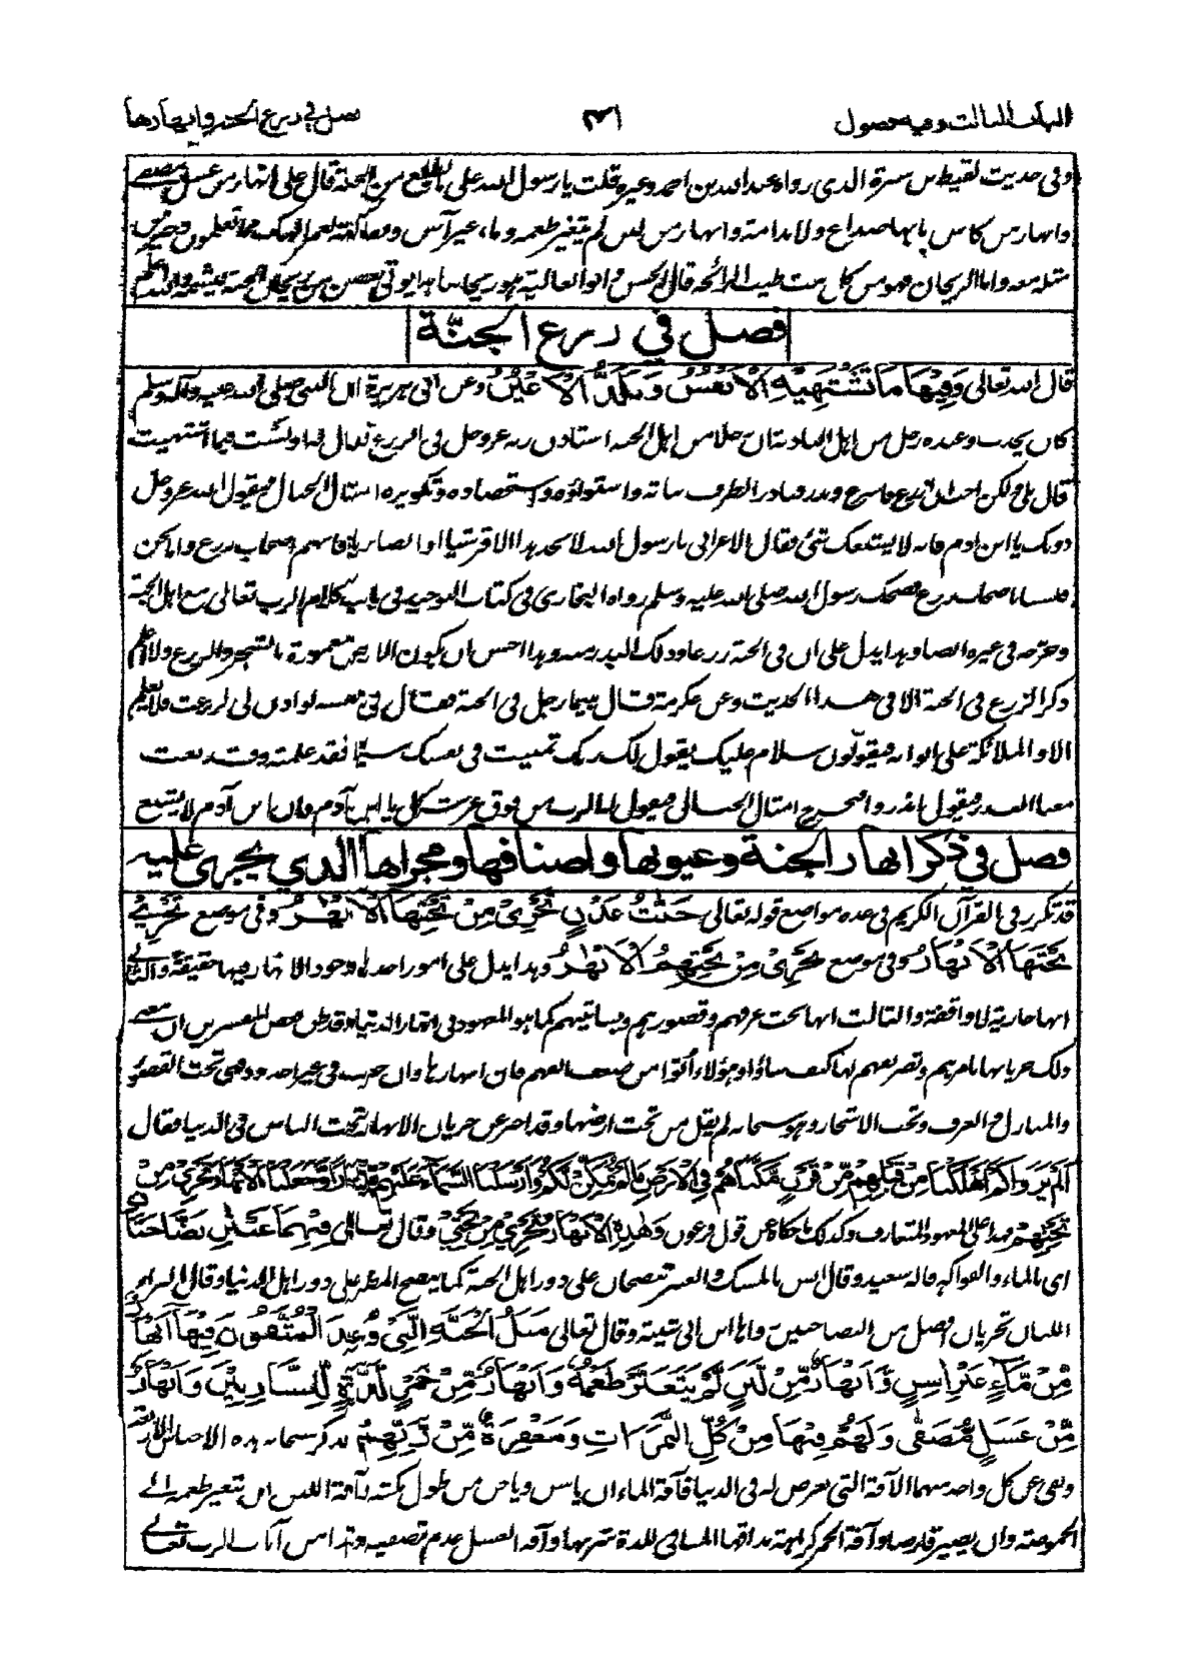 الباب الثالث وفيه فصول ٣٣١ فصل في زرع الجنة وانهارها
وفي حديث لقيط بن صبرة الذي رواه عبد الله بن احمد وغيره قلت يا رسول الله على ما نطلع من الجنة قال على انهار من عسل مصفى
وانهار من كاس ما بها صداع ولا ندامة وانهار من لبن لم يتغير طعمه وماء غير آسن وفاكهة لعمر الهك مما تعلمون وخير من
مثله معه واما الريحان فهو من كل نبت طيب الرائحة قال الحسن وابو العالية هو ريحاننا هذا يوتى بغصن من ريحان الجنة فيشمه والله اعلم
فصل في زرع الجنّة
قال الله تعالى وَفِيهَا مَا تَشْتَهِيهِ الْأَنْفُسُ وَتَلَذُّ الْأَعْيُنُ وعن ابي هريرة ان النبي صلى الله عليه وآله وسلم
كان يحدث وعنده رجل من اهل البادية ان رجلا من اهل الجنة استاذن ربه عز وجل في الزرع فقال له اولست فيما اشتهيت
قال بلى ولكن احب ان ازرع فاسرع وبذر فبادر الطرف نباته واستواؤه واستحصاده وتكويره امثال الجبال فيقول الله عز وجل
دونك يا ابن ادم فانه لا يشبعك شئ فقال الاعرابي يا رسول الله لا تجد هذا الا قرشيا او انصاريا فانهم اصحاب زرع واما نحن
فلسنا باصحاب زرع فضحك رسول الله صلى الله عليه وسلم رواه البخاري في كتاب التوحيد في باب كلام الرب تعالى مع اهل الجنة
وخرجه في غيره ايضا وهذا يدل على ان في الجنة زرعا وذلك البذر منه وهذا احسن ان يكون الارض معمورة بالشجر والزرع ولا اعلم
ذكر الزرع في الجنة الا في هذا الحديث وعن عكرمة قال بينما رجل في الجنة فقال في نفسه لو اذن لي لزرعت فلا يعلم
الا والملائكة على ابوابه فيقولون سلام عليك يقول لك ربك تمنيت في نفسك شيئا فقد علمته وقد بعث
معنا البذر فيقول ابذروا فيخرج امثال الجبال فيقول له الرب من فوق عرشه كل يا ابن آدم فان ابن آدم لا يشبع
فصل في ذكر انهار الجنة وعيونها واصنافها ومجراها الذي يجري عليه
قد تكرر في القرآن الكريم في عدة مواضع قوله تعالى جَنّٰتُ عَدْنٍ تَجْرِي مِنْ تَحْتِهَا الْأَنْهٰرُ وفي موضع تَجْرِي
تَحْتَهَا الْأَنْهَارُ وفي موضع تَجْرِي مِنْ تَحْتِهِمُ الْأَنْهٰرُ وهذا يدل على امور احدها وجود الانهار فيها حقيقة والثاني
انها جارية لا واقفة والثالث انها تحت غرفهم وقصورهم وبساتينهم كما هو المعهود في انهار الدنيا وقد ظن بعض المفسرين ان معنى
ذلك جريانها بامرهم وتصريفهم لها كيف شاؤا وهؤلاء اتوا من ضعف الفهم فان انهارها وان جرت في غير اخدود فهي تحت القصور
والمنازل والغرف وتحت الاشجار وهو سبحانه لم يقل من تحت ارضها وقد اخبر عن جريان الانهار تحت الناس في الدنيا فقال
اَلَمْ يَرَوْا كَمْ اَهْلَكْنَا مِنْ قَبْلِهِمْ مِّنْ قَرْنٍ مَّكَّنَّاهُمْ فِي الْاَرْضِ مَا لَمْ نُمَكِّنْ لَّكُمْ وَاَرْسَلْنَا السَّمَاءَ عَلَيْهِمْ مِدْرَارًا وَجَعَلْنَا الْاَنْهَارَ تَجْرِي مِنْ
تَحْتِهِمْ فهذا على المعهود المتعارف وكذلك ما حكاه عن قول فرعون وَهٰذِهِ الْاَنْهَارُ تَجْرِي مِنْ تَحْتِي وقال تعالى فِيهِمَا عَيْنَانِ نَضَّاخَتَانِ
اي بالماء والفواكه قاله سعيد وقال انس بالمسك والعنبر تنضخان على دور اهل الجنة كما ينضح المطر على دور اهل الدنيا وقال البراء
اللتان تجريان افضل من النضاختين رواه ابن ابي شيبة وقال تعالى مَثَلُ الْجَنَّةِ الَّتِي وُعِدَ الْمُتَّقُونَ فِيهَا اَنْهَارٌ
مِّنْ مَّاءٍ غَيْرِ اٰسِنٍ وَاَنْهَارٌ مِّنْ لَّبَنٍ لَّمْ يَتَغَيَّرْ طَعْمُهُ وَاَنْهَارٌ مِّنْ خَمْرٍ لَّذَّةٍ لِّلشَّارِبِينَ وَاَنْهَارٌ
مِّنْ عَسَلٍ مُّصَفًّى وَلَهُمْ فِيهَا مِنْ كُلِّ الثَّمَرَاتِ وَمَغْفِرَةٌ مِّنْ رَّبِّهِمْ فذكر سبحانه هذه الاجناس الاربعة
ونفى عن كل واحد منها الآفة التي تعرض له في الدنيا فآفة الماء ان ياسن وياجن من طول مكثه وآفة اللبن ان يتغير طعمه الى
الحموضة وان يصير قارصا وآفة الخمر كراهة مذاقها المنافي للذة شربها وآفة العسل عدم تصفيته وهذا من آيات الرب تعالى